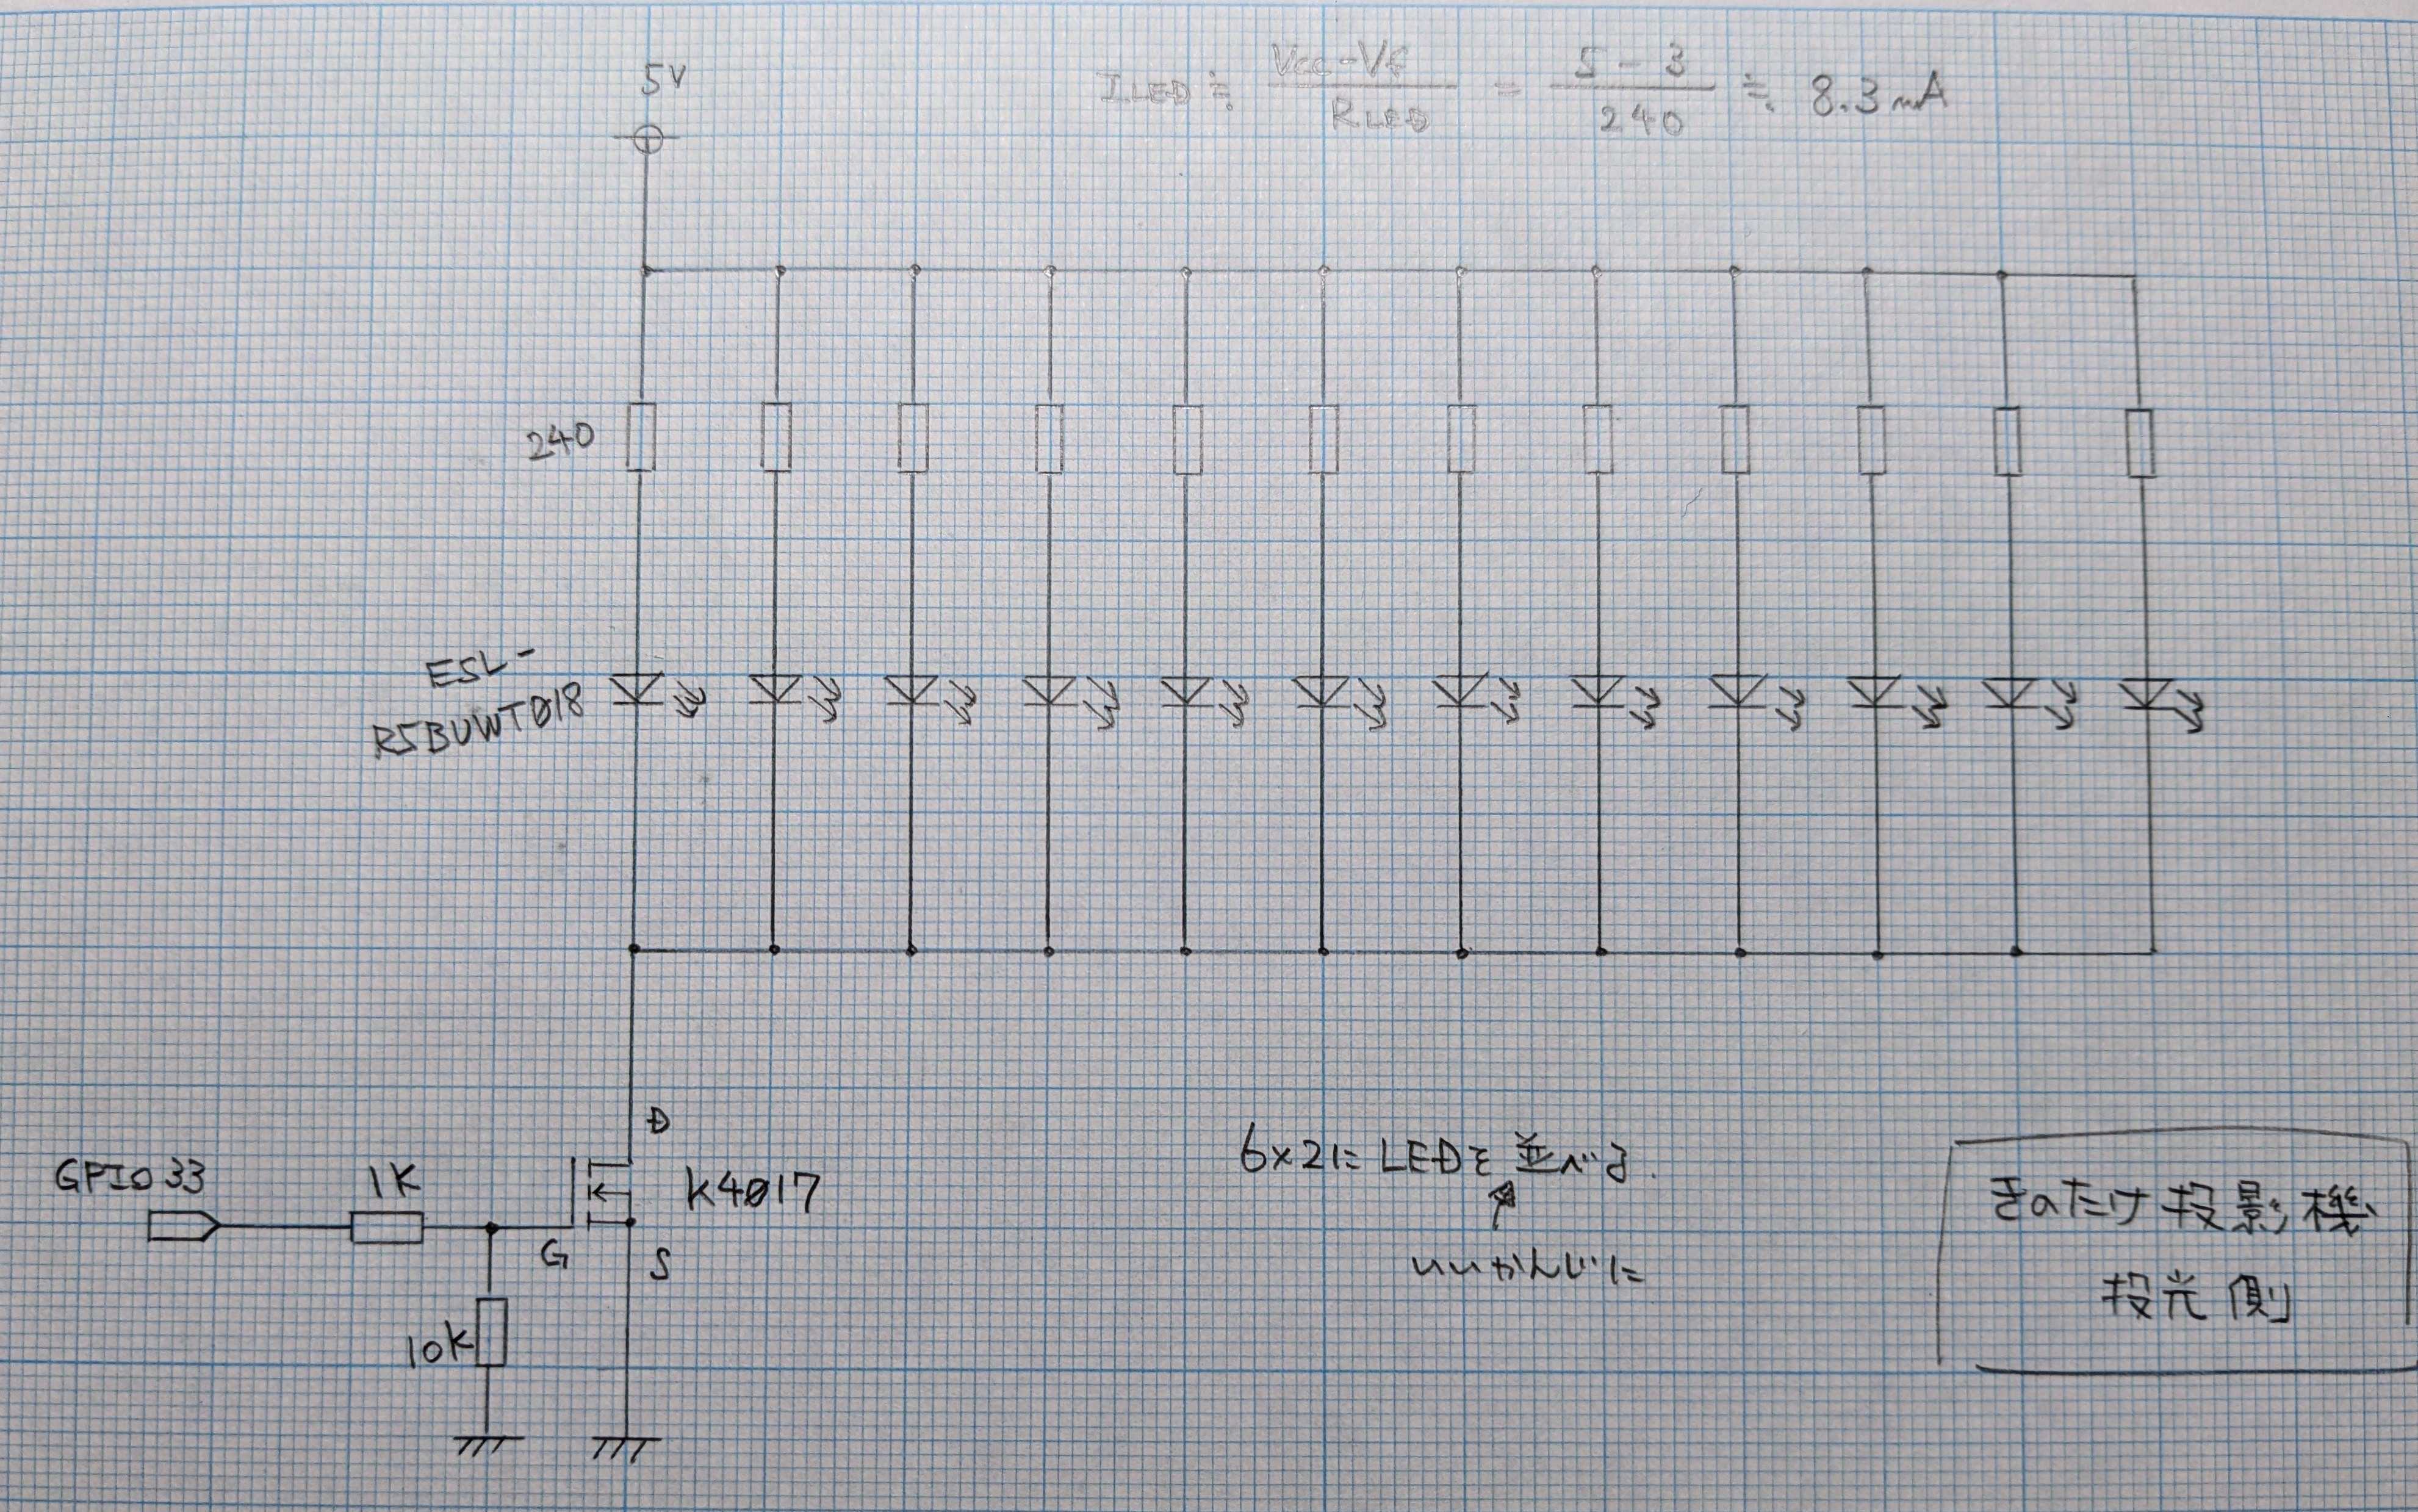 5V
ILED ≒ Vcc-Vf / RLED = 5-3 / 240 ≒ 8.3mA
240
ESL-
R5BUWT018
D
GPIO33
1K
K4017
G
S
10K
6×2に LEDを並べる.
いいかんじに
きのたけ投影機
投光側